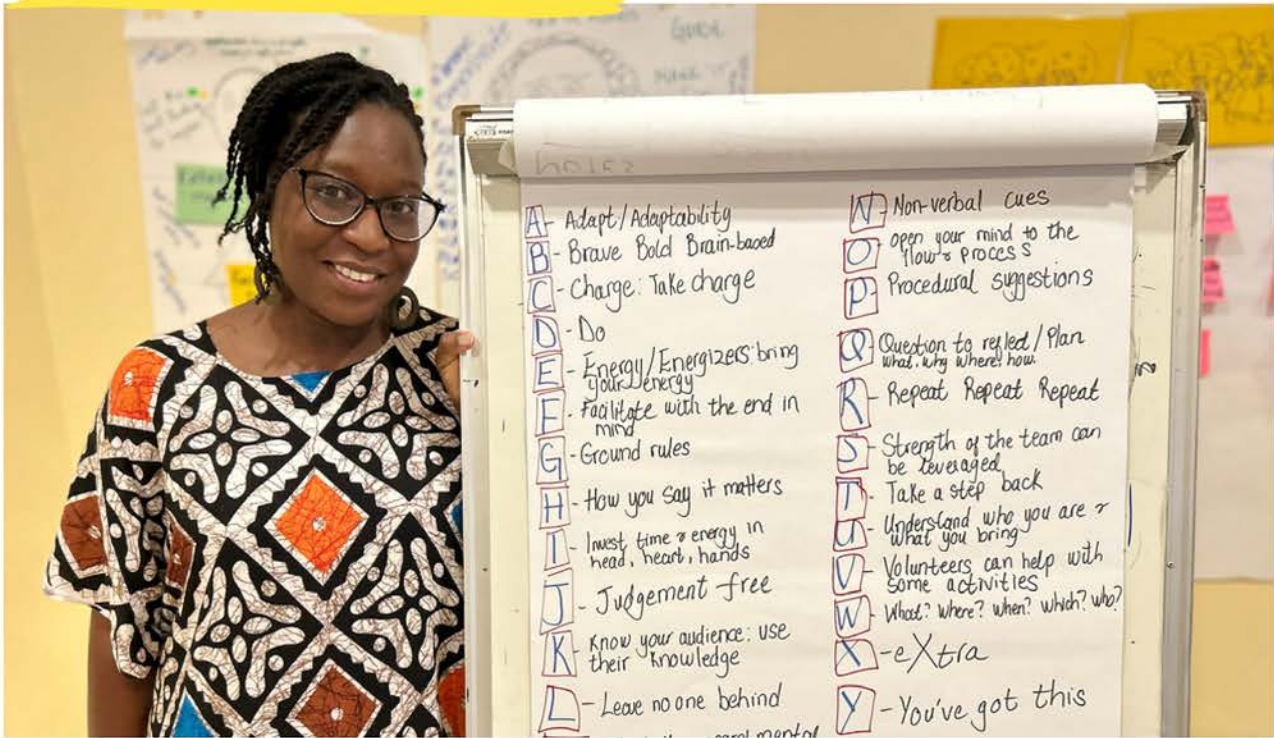 A - Adapt/Adaptability
B - Brave Bold Brain-based
C - Charge: Take charge
D - Do
E - Energy/Energizers: bring
your energy
F - Facilitate with the end in
mind
G - Ground rules
H - How you say it matters
I - Invest time & energy in
head, heart, hands
J - Judgement free
K - Know your audience: use
their knowledge
L - Leave no one behind
mental
N - Non-verbal cues
O - Open your mind to the
flow & process
P - Procedural suggestions
Q - Question to reflect/Plan
what, why where? how.
R - Repeat Repeat Repeat
S - Strength of the team can
be leveraged
T - Take a step back
U - Understand who you are &
what you bring
V - Volunteers can help with
some activities
W - What? where? when? which? who?
X - eXtra
Y - You've got this